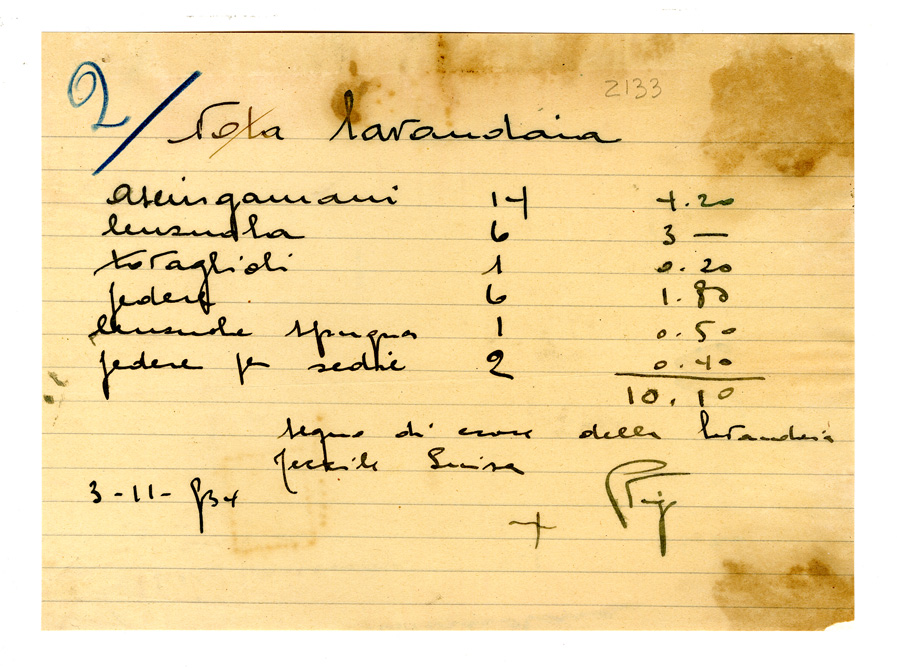 2/ 2133
Nota lavandaia
asciugamani 14 4.20
lensuola 6 3 —
tovaglioli 1 0.20
federe 6 1.80
lensuolo spugna 1 0.50
federe per sedie 2 0.40
10.10
segno di croce della lavandaia
Luisa
3-11-934
+